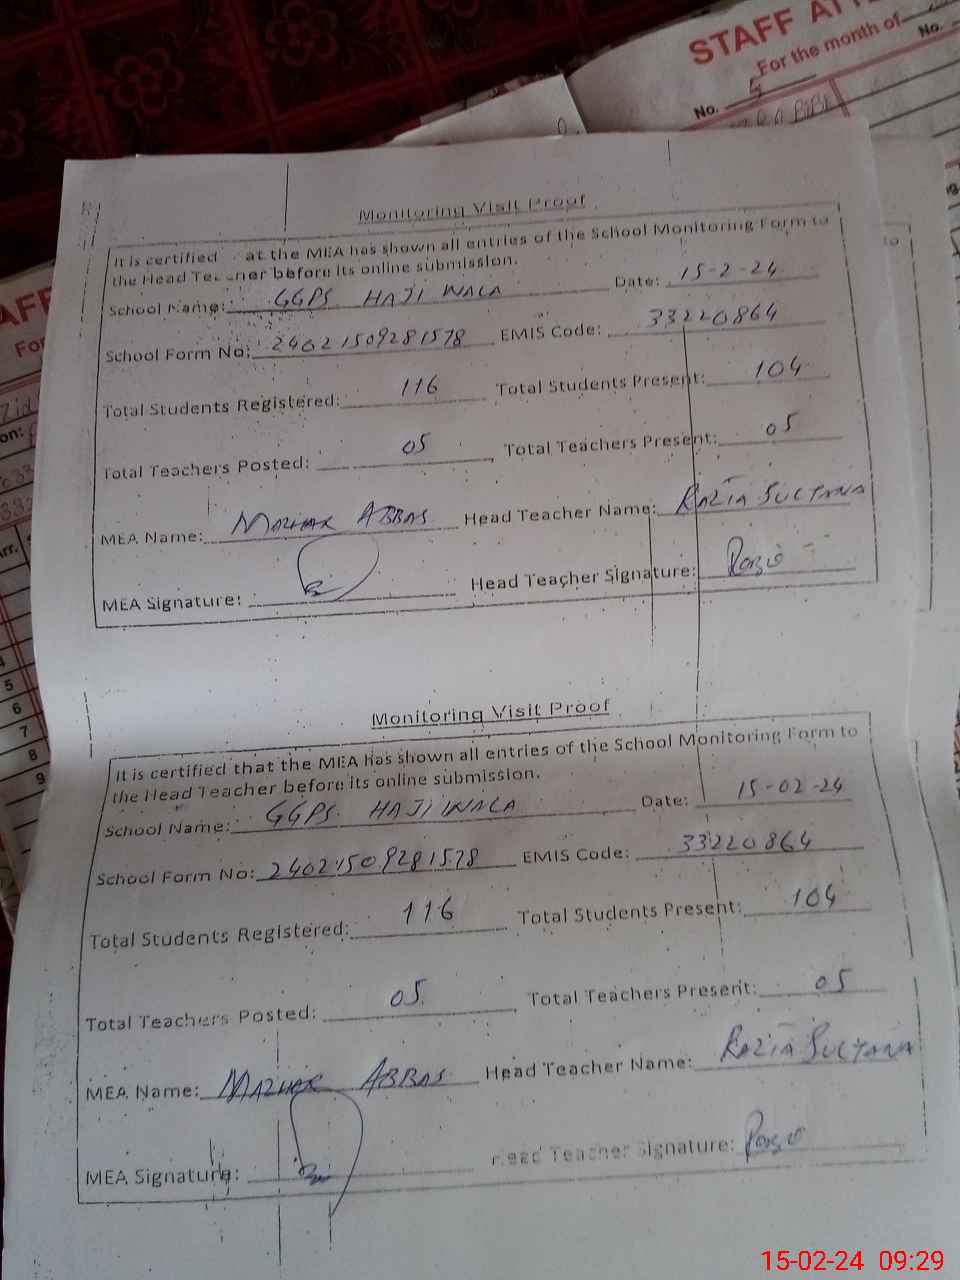 STAFF
For the month of
No. 5
No.
Monitoring Visit Proof
It is certified at the MEA has shown all entries of the School Monitoring Form to
the Head Teacher before its online submission.
School Name: GGPS HAJI WALA Date: 15-2-24
School Form No: 24021509281578 EMIS Code: 33220864
Total Students Registered: 116 Total Students Present: 104
Total Teachers Posted: 05 Total Teachers Present: 05
MEA Name: MAZHAR ABBAS Head Teacher Name: RAZIA SULTANA
MEA Signature: Head Teacher Signature: Razia
Monitoring Visit Proof
It is certified that the MEA has shown all entries of the School Monitoring Form to
the Head Teacher before its online submission.
School Name: GGPS HAJI WALA Date: 15-02-24
School Form No: 24021509281578 EMIS Code: 33220864
Total Students Registered: 116 Total Students Present: 104
Total Teachers Posted: 05 Total Teachers Present: 05
MEA Name: MAZHAR ABBAS Head Teacher Name: RAZIA SULTANA
MEA Signature: Head Teacher Signature: Razia
5
6
7
8
9
15-02-24 09:29